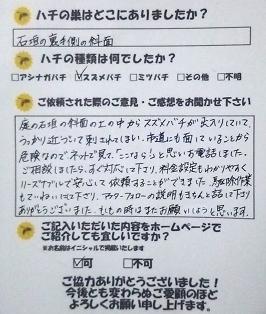 ハチの巣はどこにありましたか?
石垣の裏手側の斜面
ハチの種類は何でしたか?
□アシナガバチ ☑スズメバチ □ミツバチ □その他 □不明
ご依頼された際のご意見・ご感想をお聞かせ下さい
庭の石垣の斜面の土の中からスズメバチが出入りしていて、
うっかり近づいて刺されてしまい、市道にも面していることから
危険なのでネットで見て、"ここなら"と思いお電話しました。
ご相談しましたら、すぐ対応して下さり、料金設定もわかりやすく
リーズナブルで安心して依頼することができました。駆除作業
もていねいにして下さり、アフターフォローの説明もきちんと話して下さり
ありがとうございました。もしもの時はまたお願いしようと思います。
ご記入いただいた内容をホームページで
ご紹介しても宜しいですか?
※お名前はイニシャルで掲載いたします
☑可 □不可
ご協力ありがとうございました!
今後とも変わらぬご愛顧のほど
よろしくお願い申し上げます。